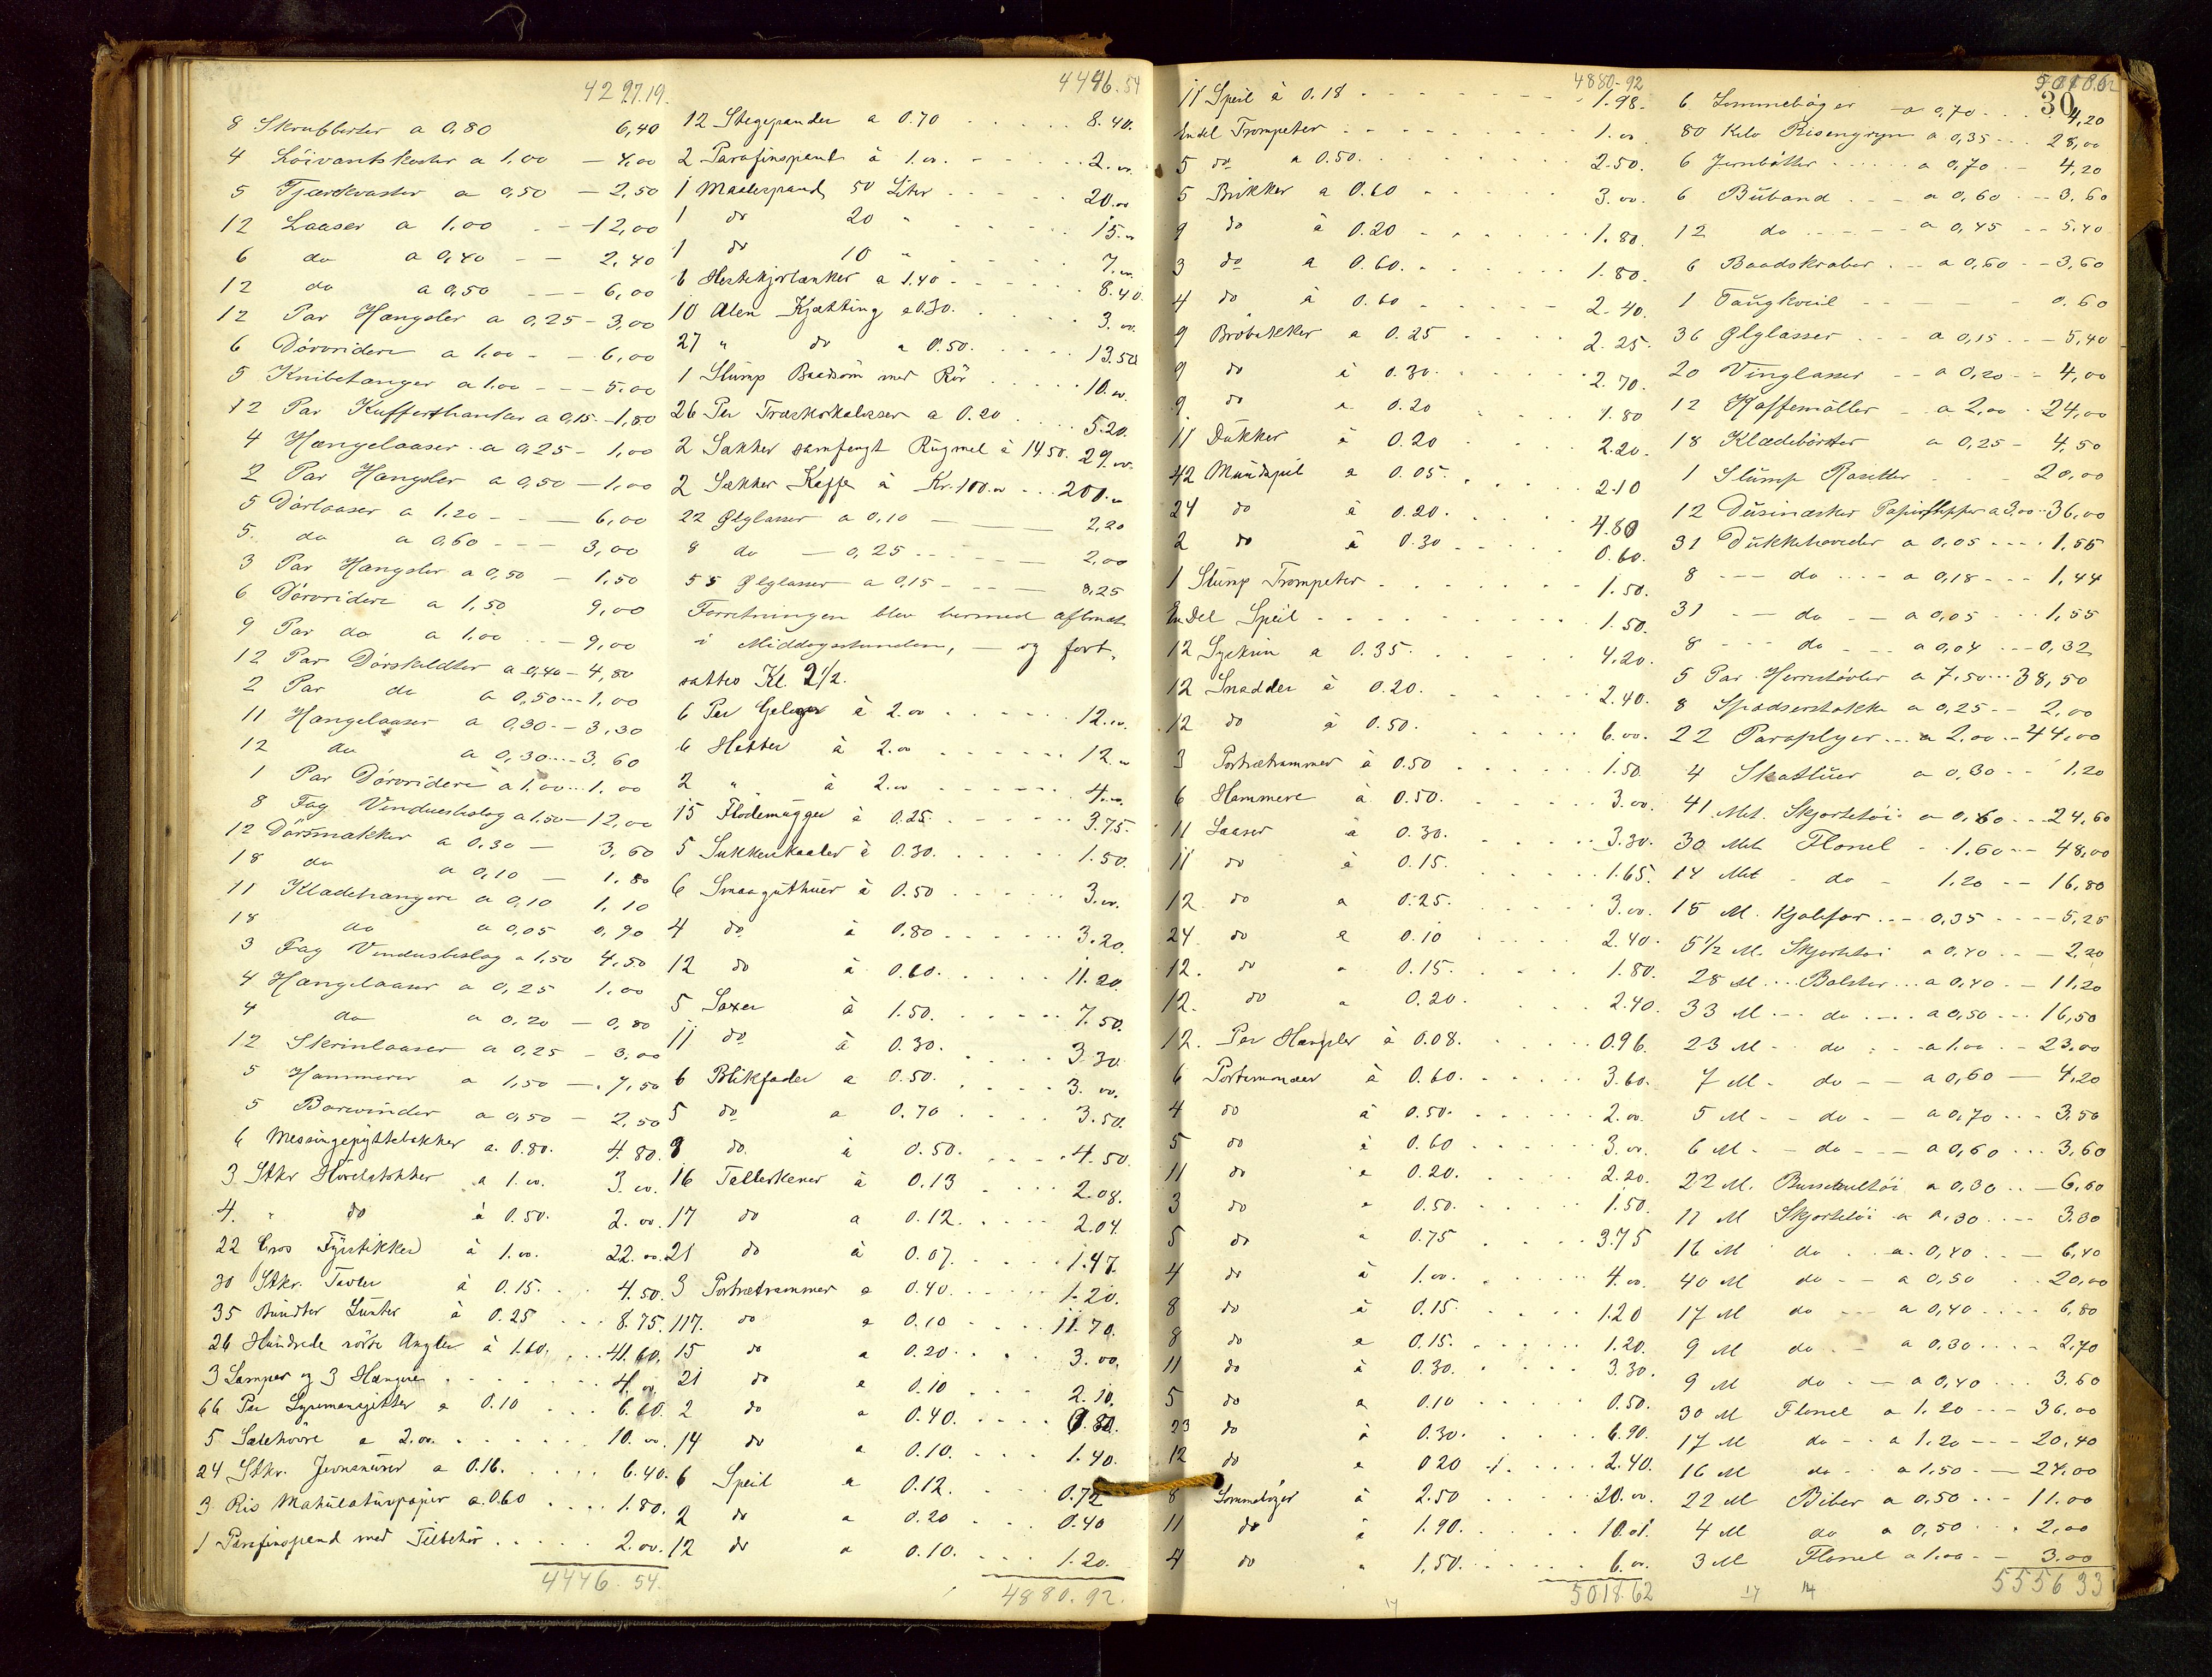 4297.19.
8 Skrubbørster a 0,80 6,40
4 Löivantskoster a 1,00 — 4,00
5 Tjærekvaster a 0,50 — 2,50
12 Laaser a 1,00 - - 12,00
6 do a 0,40 - - 2,40
12 do a 0,50 - - - 6,00
12 Par Hængsler a 0,25 - 3,00
6 Dörvridere a 1,00 - - 6,00
5 Knibetanger a 1.00 - - - 5.00
12 Par Kufferthanker a 0,15 - 1,80
4 Hængelaaser a 0,25 - 1,00
2 Par Hængsler a 0,50 - 1,00
5 Dörlaaser a 1.20 - - - 6,00
5 do a 0,60 - - - 3,00
3 Par Hængsler a 0,50 - 1,50
6 Dörvridere a 1,50 9,00
9 Par do a 1,00 - - - 9,00
12 Par Dörskildter a 0,40 - 4,80
2 Par do a 0,50 - - - 1,00
11 Hængelaaser a 0,30 - - 3,30
12 do a 0,30 - - - 3,60
1 Par Dörvridere a 1.00 - - 1,00
8 Fag Vinduesbeslag a 1.50 - 12,00
12 Dörsmækker a 0,30 - 3,60
18 do a 0,10 - 1,80
11 Klædehængere a 0,10 1,10
18 do a 0,05 0,90
3 Fag Vinduesbeslag a 1,50 4,50
4 Hængelaaser a 0,25 1,00
4 do a 0,20 - 0,80
12 Skrinlaaser a 0,25 - 3,00
5 Hammerer a 1,50 - 7,50
5 Borvinder a 0,50 - 2,50
6 Messingspyttebakker a. 0.80. 4.80.
3 Stkr a 1.00. 3.00.
4. " do à 0.50. 2.00.
22 Gros Fyrstikker à 1.00. 22.00.
30 Stkr. Tavler à 0.15. 4.50.
35 Bundter Lunter à 0.25 8.75.
26 Hundrede Angler à 1.60. 41.60.
3 Lamper og 3 Hængere 4.00
66 Par a 0.10 6.60.
5 a 2.00. 10.00.
24 Stkr. a 0.16. 6.40.
3 Ris Makulaturpapir a. 0.60 1.80.
1 Parafinspand med Tilbehör 2.00.
4446.54.
4446.54
12 Stegepander a 0.70 8.40.
2 Parafinspand à 1.00. 2.00.
1 Maalerspand 50 Liter 20.00
1 do 20 " 15.00
1 do 10 " 7.00
6 a 1.40 8.40.
10 Alen Kjætting a 0.30. 3.00.
27 " do a 0.50. 13.50
1 Slump Baadsöm med Rör 10.00.
26 Par a 0.20 5.20.
2 Sækker Rugmel à 14.50. 29.00.
2 Sækker Kaffe à Kr. 100.00 200.00
22 Ølglasser a 0,10 2,20
8 do - 0,25 2,00
55 Ølglasser a 0,15 8,25
Forretningen blev hermed afbrudt
i Middagsstunden, — og fort-
sattes Kl. 2½.
6 Par à 2.00 12.00.
6 Hætter à 2.00 12.00
2 " à 2.00 4.00.
15 Flödemugger à 0.25 3.75.
5 Sukkerskaaler à 0.30. 1.50.
6 Smaaguthuer à 0.50 3.00.
4 do à 0.80 3.20.
12 do à 0.60. 11.20.
5 Saxer à 1.50. 7.50.
11 do à 0.30. 3.30.
6 Blikfade a 0.50. 3.00.
5 do a 0.70 3.50.
9 do à 0.50. 4.50.
16 Tallerkener à 0.13 2.08.
17 do a 0.12. 2.04.
21 do à 0.07. 1.47.
3 Portrætrammer a 0.40. 1.20.
117. do a 0.10 11.70.
15 do a 0.20. 3.00.
21 do a 0.10 2.10.
2 do a 0.40. 0.80.
14 do a 0.10. 1.40.
6 Speil a 0.12. 0.72
2 do a 0.20 0.40
12 do a 0.10. 1.20.
4880.92.
4880.92
11 Speil à 0.18 1.98.
Endel Trompeter 1.00
5 do a 0.50. 2.50.
5 Brikker a 0.60 3.00.
9 do à 0.20 1.80.
3 do a 0.60. 1.80.
4 do à 0.60 2.40.
9 Bröbakker a 0.25 2.25.
9 do à 0.30. 2.70.
9 do a 0.20 1.80
11 Dukker à 0.20 2.20.
42 Mundspil a 0.05. 2.10
24 do à 0.20. 4.80
2 do à 0.30 0.60.
1 Slump Trompeter 1.50.
En Del Speil 1.50.
12 Syskrin a 0.35. 4.20.
12 Snadder à 0.20. 2.40.
12 do à 0.50. 6.00.
3 Portrætrammer à 0.50 1.50.
6 Hammere à 0.50. 3.00.
11 Laaser à 0.30. 3.30.
11 do à 0.15. 1.65.
12. do a 0.25. 3.00.
24 do a 0.10 2.40.
12. do a 0.15. 1.80.
12. do a 0.20. 2.40.
12. Par Hængsler à 0.08. 0.96.
6 Portemonæer à 0.60. 3.60.
4 do à 0.50. 2.00.
5 do à 0.60 3.00.
11 do a 0.20. 2.20.
3 do a 0.50. 1.50.
5 do a 0.75 3.75
4 do à 1.00. 4.00.
8 do à 0.15. 1.20
8 do a 0.15. 1.20.
11 do à 0.30. 3.30.
5 do a 0.10 0.50.
23 do à 0.30. 6.90.
12 do a 0.20 2.40.
8 Lommebøger à 2.50 20.00.
11 do à 1.90. 10.01.
4 do " 1.50. 6.00.
5018.62
5018.62
30
6 Lommebøger a 0,70 4,20
80 Kilo Risengryn a 0,35 28,00
6 Jernbötter a 0,70 4,20
6 Buband a 0,60 3,60
12 do a 0,45 5,40
6 Baadskraber a 0,60 3,60
1 Taugkveil 0.60
36 Ølglasser a 0,15 5,40
20 Vinglasser a 0,20 4,00
12 Kaffemöller a 2,00 24,00
18 Klædebörster a 0,25 4,50
1 Slump Rosetter 20,00
12 Dusinæsker Papirflipper a 3.00 36,00
31 Dukkehoveder a 0,05 1,55
8 - - - do a 0,18 1,44
31 - - do a 0,05 1,55
8 - - do a 0,04 0,32
5 Par Herrestövler a 7,50 38,50
8 Spadserstokke a 0,25 2,00
22 Paraplyer a 2.00 44,00
4 Skatluer a 0,30 1,20
41 Met. Skjortetöi a 0,60 24,60
30 Met Flonel 1,60 48,00
14 Met do 1,20 16,80
15 M. Kjolefor 0,35 5,25
5½ M. Skjortetöi a 0,40 2,20
28 M Bolster a 0,40 11,20
33 M do a 0,50 16,50
23 M do a 1.00 23,00
7 M do a 0,60 4,20
5 M do a 0,70 3,50
6 M do a 0,60 3,60
22 M. a 0,30 6,60
11 M Skjortetöi a 0,30 3.30
16 M do a 0,40 6,40
40 M do a 0,50 20,00
17 M do a 0,40 6,80
9 M do a 0,30 2,70
9 M do a 0,40 3.60
30 M Flonel a 1.20 36,00
17 M do a 1.20 20,40
16 M do a 1,50 24,00
22 M Biber a 0,50 11.00
4 M do a 0,50 2,00
3 M Flonel a 1.00 3.00
5556 33